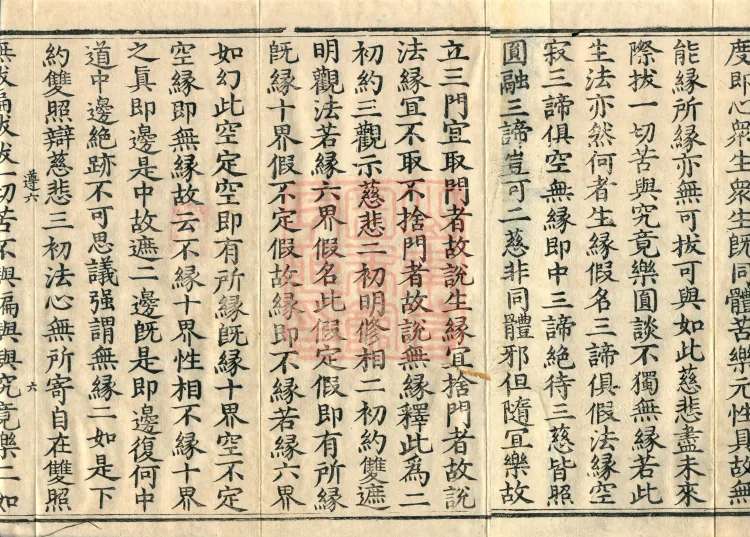 度即心衆生衆生旣同體苦樂元性具故無
能緣所緣亦無可拔可與如此慈悲盡未來
際拔一切苦與究竟樂圓談不獨無緣若此
生法亦然何者生緣假名三諦俱假法緣空
寂三諦俱空無緣即中三諦絶待三慈皆照
圓融三諦豈可二慈非同體邪但隨宜樂故
立三門宜取門者故說生緣宜捨門者故說
法緣宜不取不捨門者故說無緣釋此爲二
初約三觀示慈悲三初明修相二初約雙遮
明觀法若緣六界假名此假定假即有所緣
旣緣十界假不定假故緣即不緣若緣六界
如幻此空定空即有所緣旣緣十界空不定
空緣即無緣故云不緣十界性相不緣十界
之眞即邊是中故遮二邊旣是即邊復何中
道中邊絶跡不可思議强謂無緣二如是下
約雙照辯慈悲三初法心無所寄自在雙照
遵六
六
無拔徧拔拔一切苦不與徧與與究竟樂二如